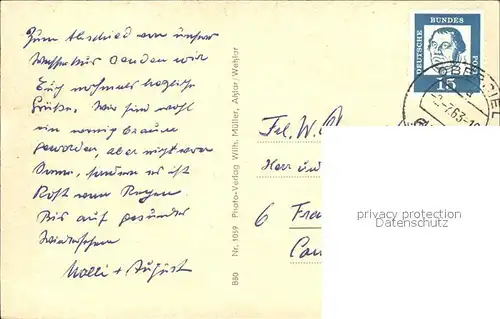 Zum Abschied von unserer
Wasserkur senden wir
Euch nochmals herzliche
Grüße. Wir sind wohl
ein wenig braun
geworden, aber nicht von
Sonne, sondern es ist
Rost vom Regen.
Bis auf gesundes
Wiedersehen
Molli + August
B80 Nr. 1059 Photo-Verlag Wilh. Müller, Aßlar/Wetzlar
DEUTSCHE BUNDESPOST
15
OBERBIEL
-2.7.63-
Frl. W.
Herr und
6 Fra
privacy protection
Datenschutz